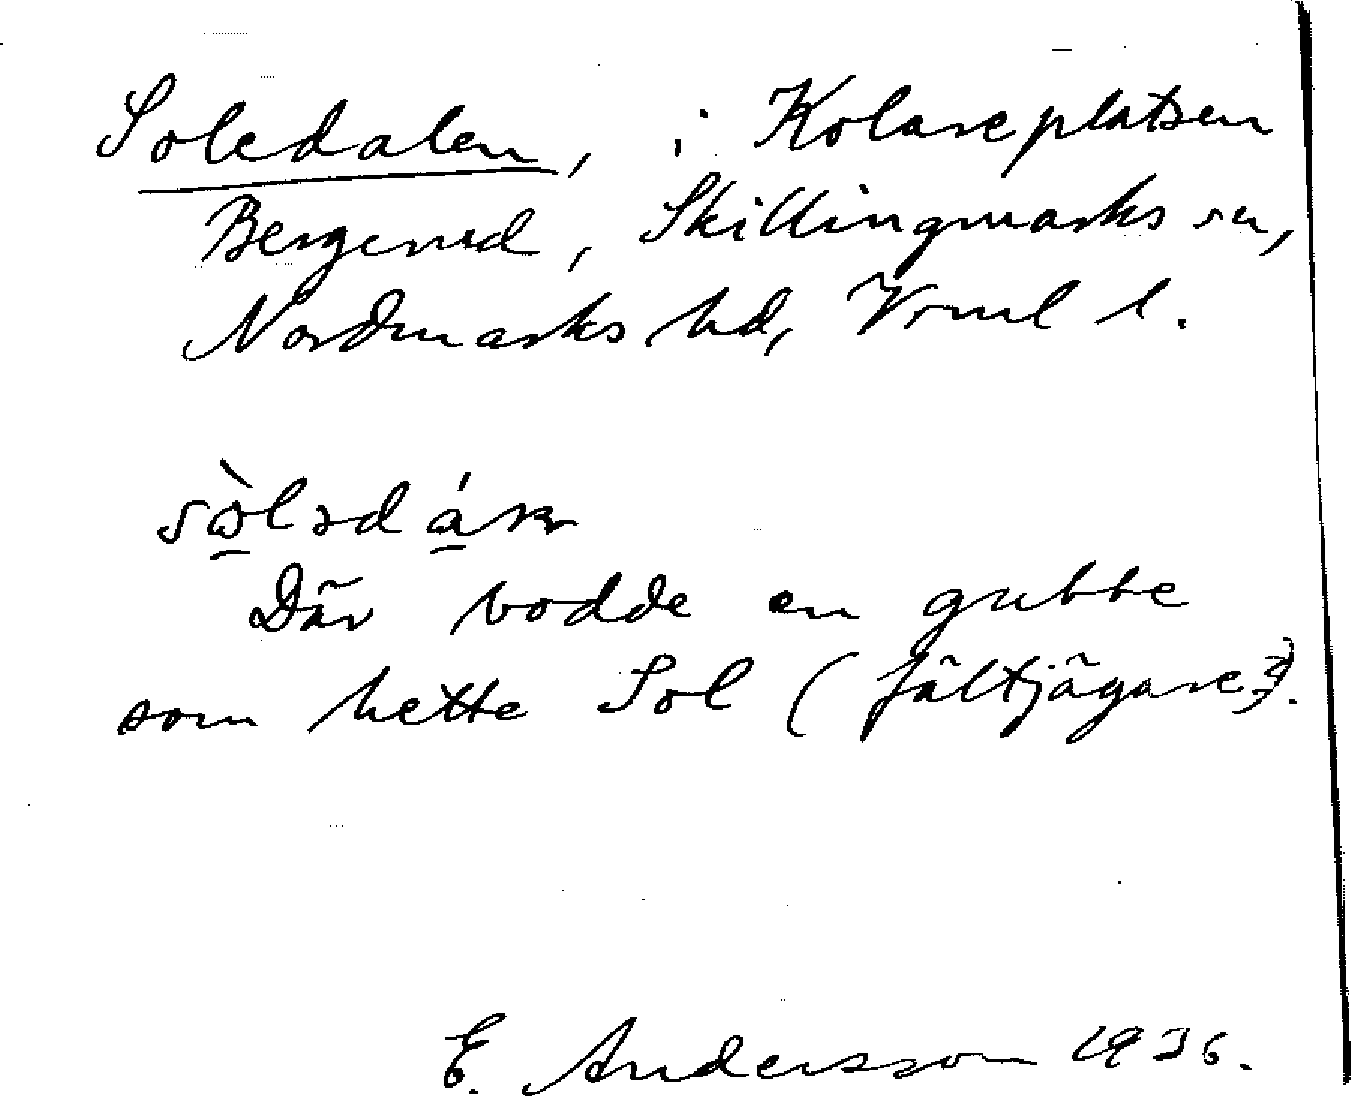 Soledalen, i Kolareplatsen
Bergerud, Skillingmarks sn,
Nordmarks hd, Vrml l.
Där bodde en gubbe
som hette Sol (fältjägare).
E. Andersson 1936.